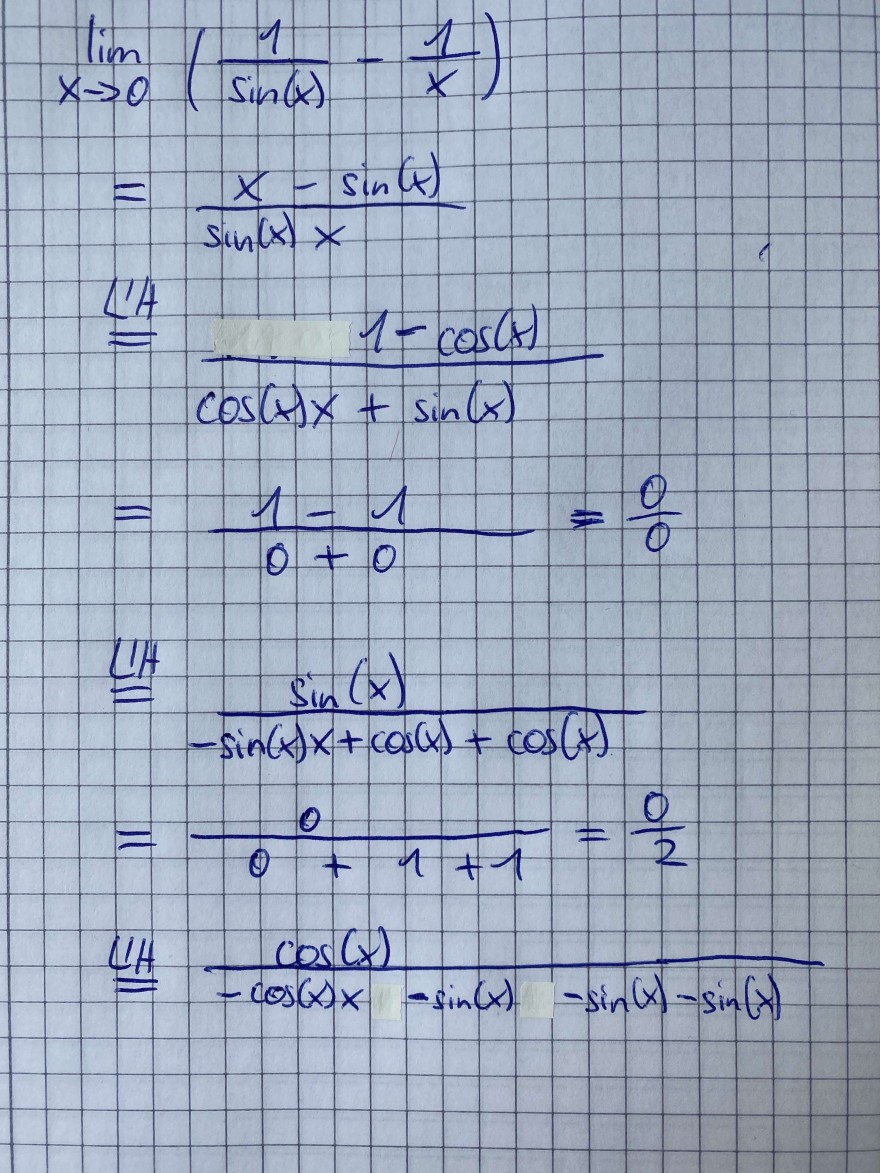 lim x→0 ( 1/sin(x) - 1/x )
= (x - sin(x))/(sin(x) x)
L'H = (1 - cos(x))/(cos(x)x + sin(x))
= (1 - 1)/(0 + 0) = 0/0
L'H = sin(x)/(-sin(x)x + cos(x) + cos(x))
= 0/(0 + 1 + 1) = 0/2
L'H = cos(x)/(-cos(x)x - sin(x) - sin(x) - sin(x))